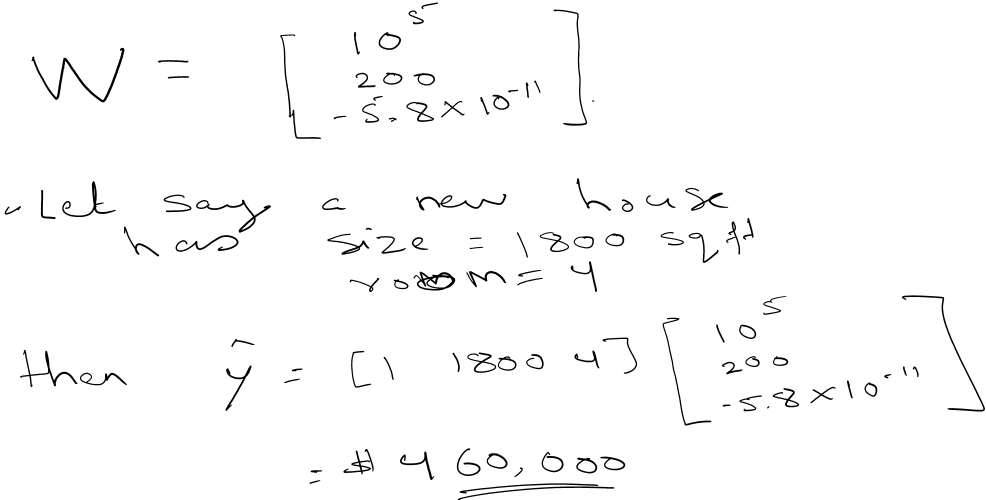 W = [ 10^5
200
-5.8 × 10^-11 ].
Let say a new house
has size = 1800 sqft
room = 4
then ŷ = [1 1800 4] [ 10^5
200
-5.8 × 10^-11 ]
= $ 460,000